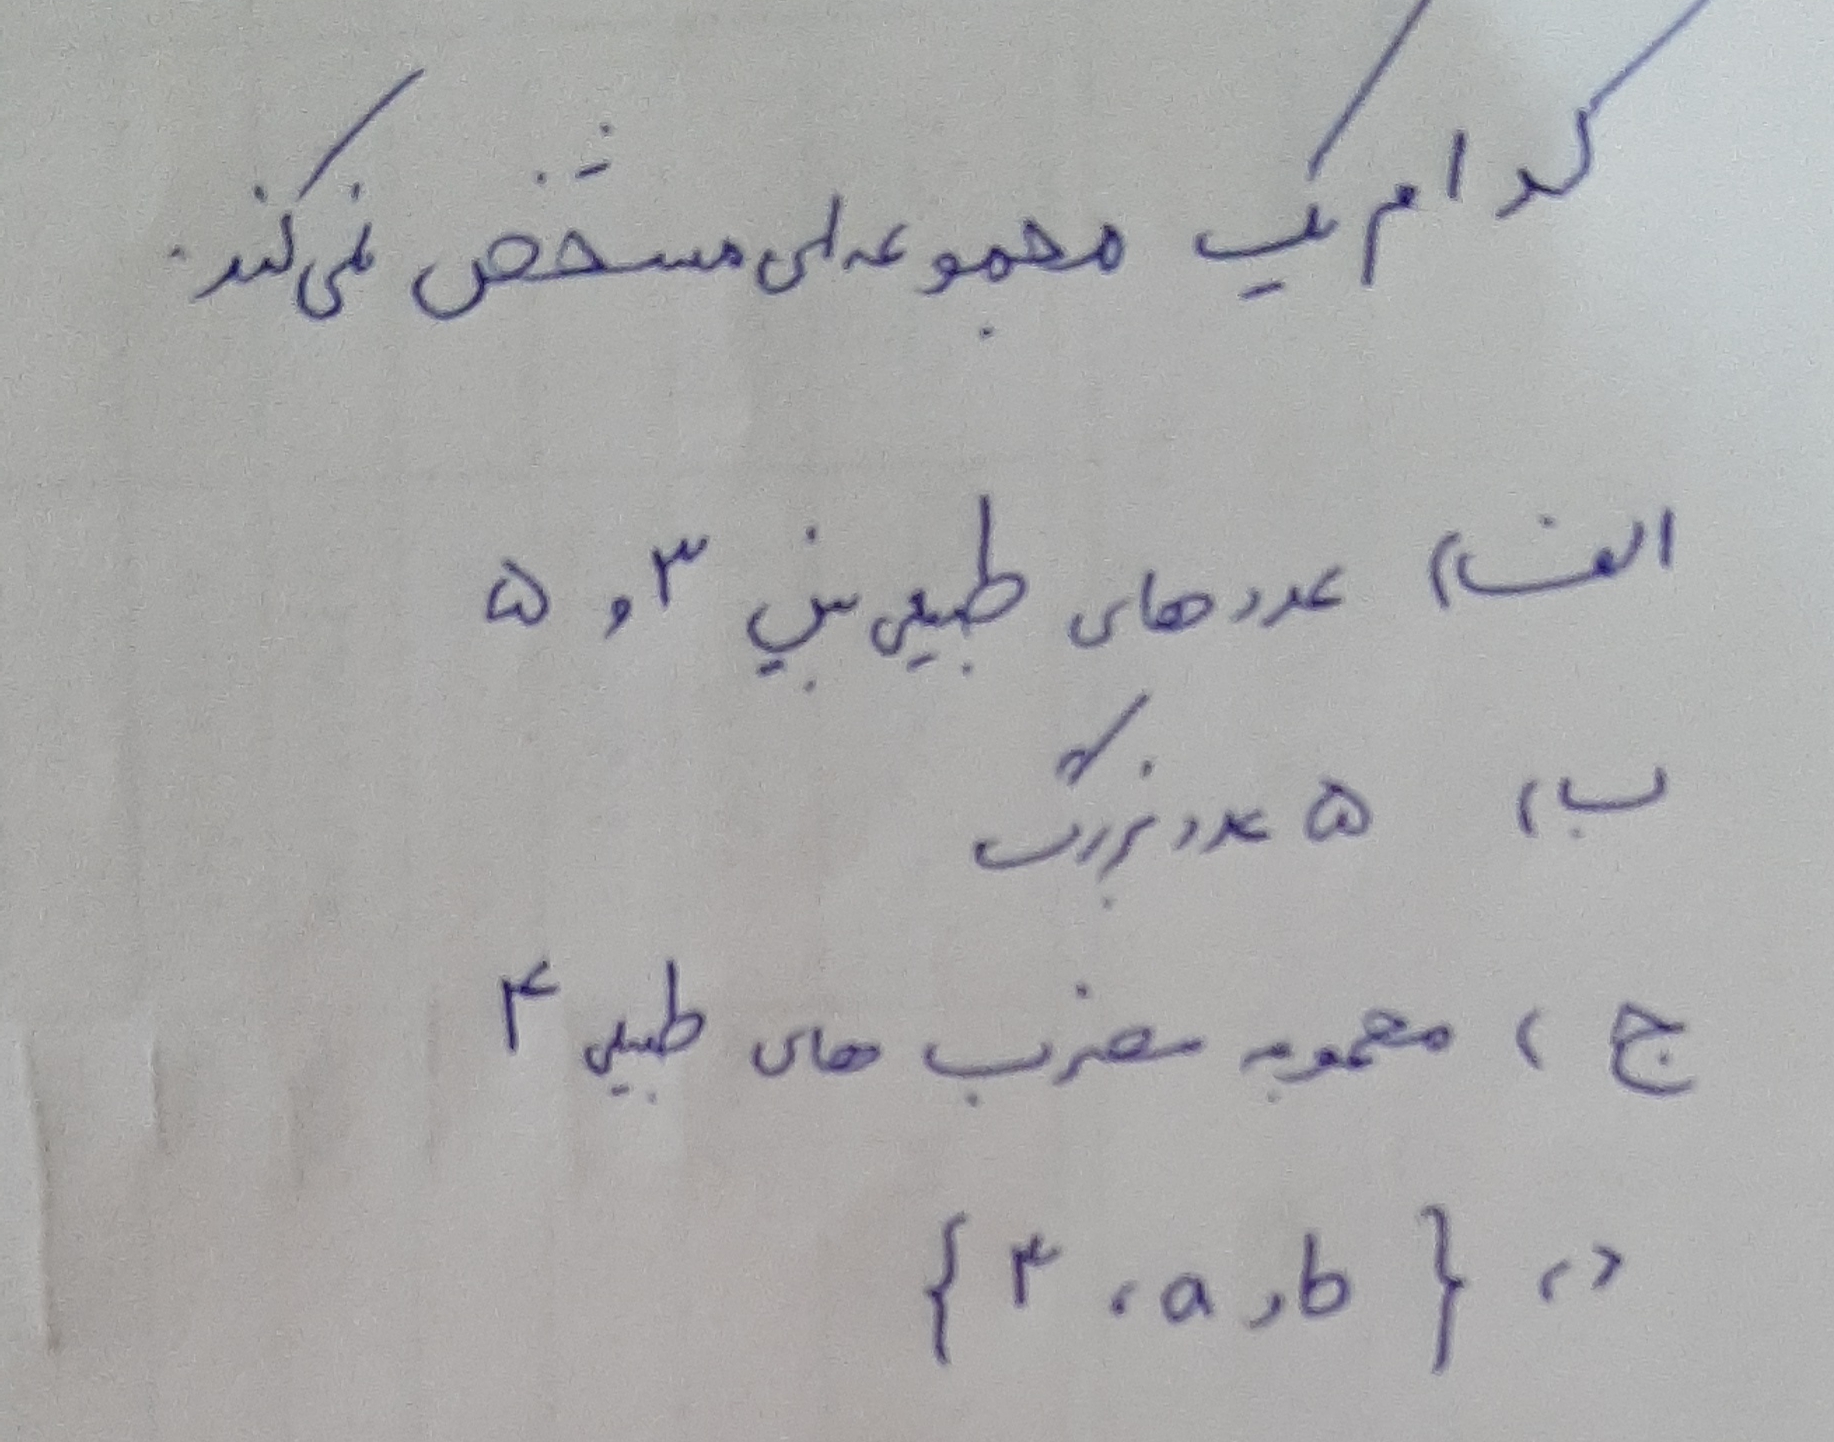 کدام یک مجموعه‌ای مشخص نمی‌کند.
الف) عددهای طبیعی بین ۳ و ۵
ب) ۵ عدد بزرگ
ج) مجموعه مضرب های طبیعی ۴
د) {۴ ، a , b}